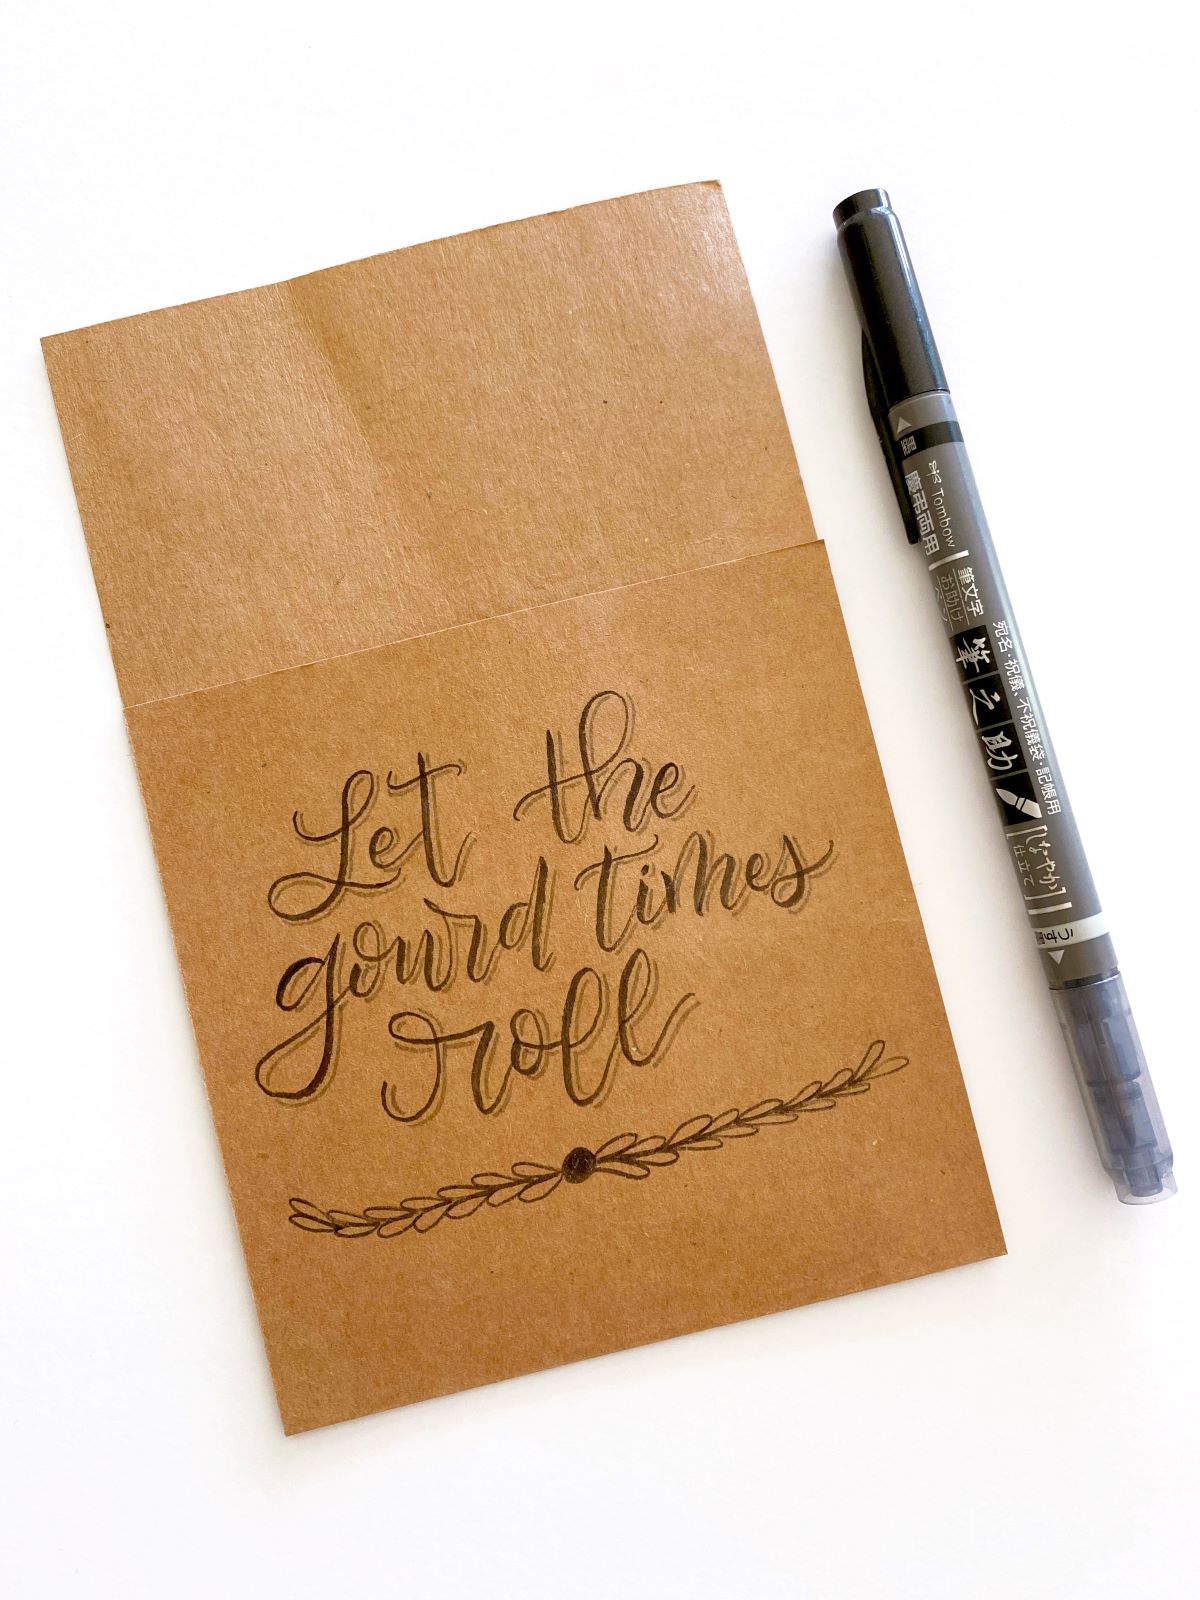 Let the
gourd times
roll
黒
Tombow
慶弔両用
筆文字
お助け
ペン
筆之助
宛名・祝儀、不祝儀袋・記帳用
しなやか
仕立て
うす墨